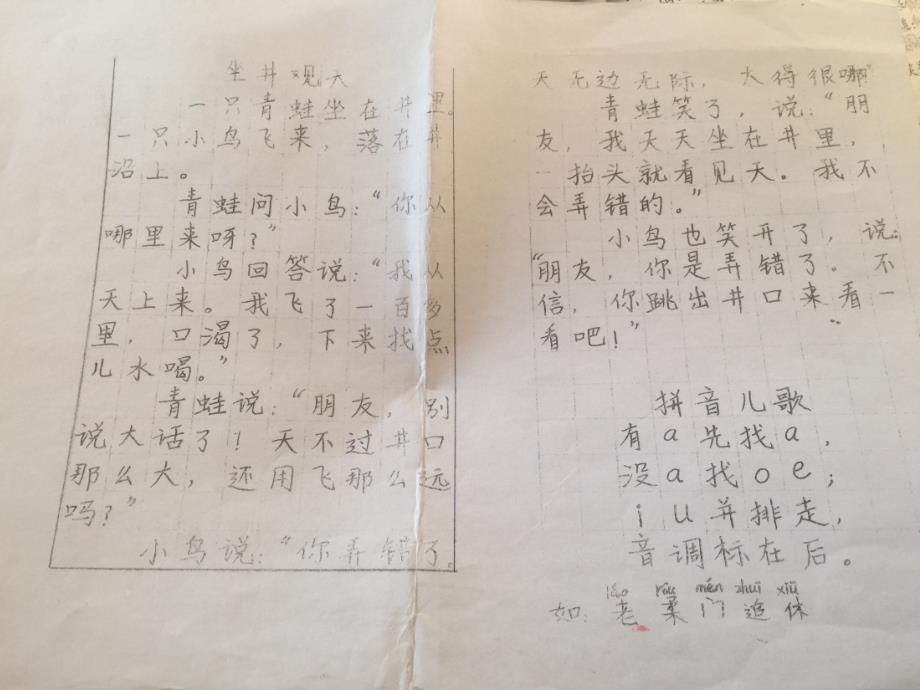 坐井观天
一只青蛙坐在井里。
一只小鸟飞来，落在井
沿上。
青蛙问小鸟：“你从
哪里来呀？”
小鸟回答说：“我从
天上来。我飞了一百多
里，口渴了，下来找点
儿水喝。”
青蛙说：“朋友，别
说大话了！天不过井口
那么大，还用飞那么远
吗？”
小鸟说：“你弄错了。
天无边无际，大得很哪”
青蛙笑了，说：“朋
友，我天天坐在井里，
一抬头就看见天。我不
会弄错的。”
小鸟也笑开了，说：
“朋友，你是弄错了。不
信，你跳出井口来看一
看吧！”
拼音儿歌
有a先找a，
没a找oe；
iu并排走，
音调标在后。
lǎo róu mén zhuī xiū
如：老柔门追休